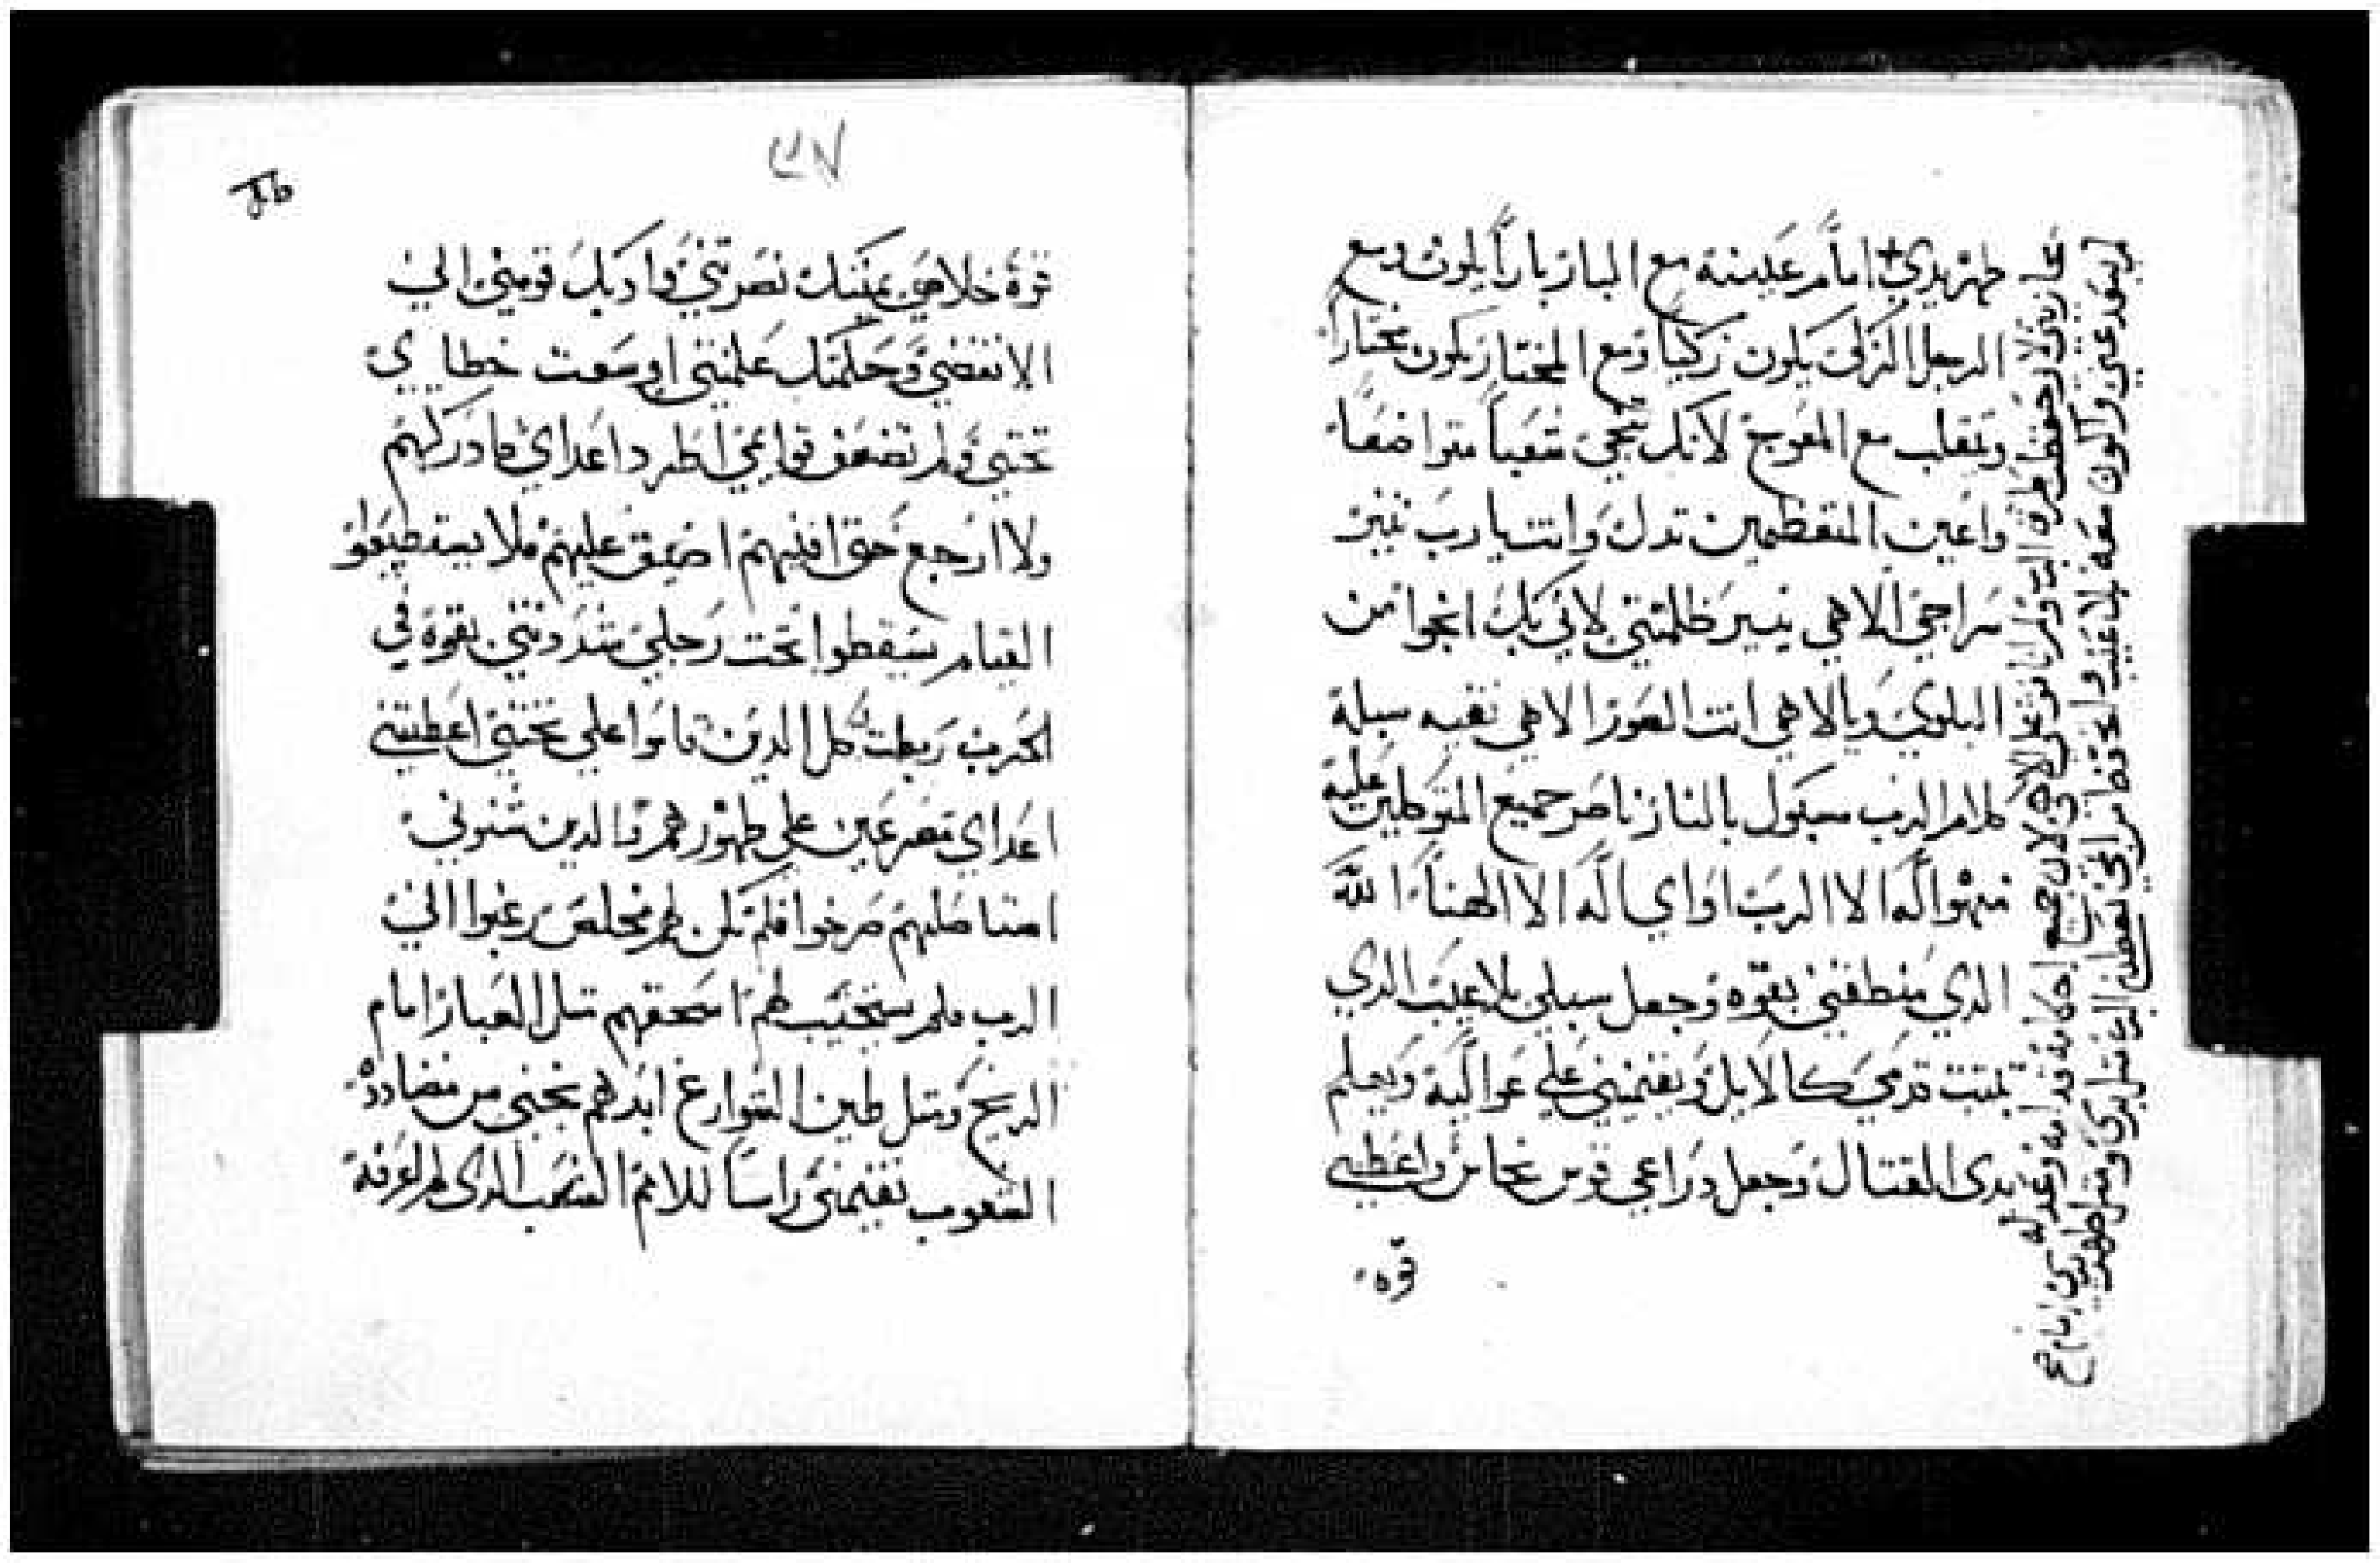 طهر يدي امام عينيه مع البار باراً يكون ومع
الرجل الزكي يكون زكياً ومع المختار يكون مختاراً
وتقلب مع المعوج لانك تنجي شعباً متواضعاً
واعين المتعظمين تدل وانت يارب تنير
سراجي الاهي ينير ظلمتي لاني بك انجوا من
البلوي وبالاهي انت السور الاهي نقيه سبله
كلام الرب مسبوك بالنار ناصر جميع المتوكلين عليه
من هوا اله الا الرب او اي اله الا الهنا الله
الدي منطقني بقوه وجعل سبلي بلا عيب الدي
تبتت قدمي كالايل ويقيمني علي عواليه ويعلم
يدي القتال وجعل دراعي قوس نحاس واعطي
قوة
لان جميع احكامه قدامه وعدله
لم يبعد عني واكون معه بلا عيب واحتفظ من
٣٧
قوة خلاصي يمينك نصرتني وادبك قومني الي
الانقضي وحكمتك علمتني اوسعت خطاي
تحتي ولم تضعف قوايمي اطرد اعداي فادركهم
ولا ارجع حتي افنيهم اضيق عليهم فلا يستطيعوا
القيام يسقطوا تحت رجلي شددتني بقوة في
الحرب ربطت كل الدين قاموا علي تحتي اعطيتني
اعداي متضرعين علي ظهورهم والدين شنوني
استاصلهم صرخوا فلم يكن لهم مخلص رغبوا الي
الرب فلم يستجيب لهم اسحقهم متل الغبار امام
الريح ومتل طين الشوارع ابدهم نجني من مضاددة
الشعوب تقيمني راساً للامم الشعب الدي لم اعرفه